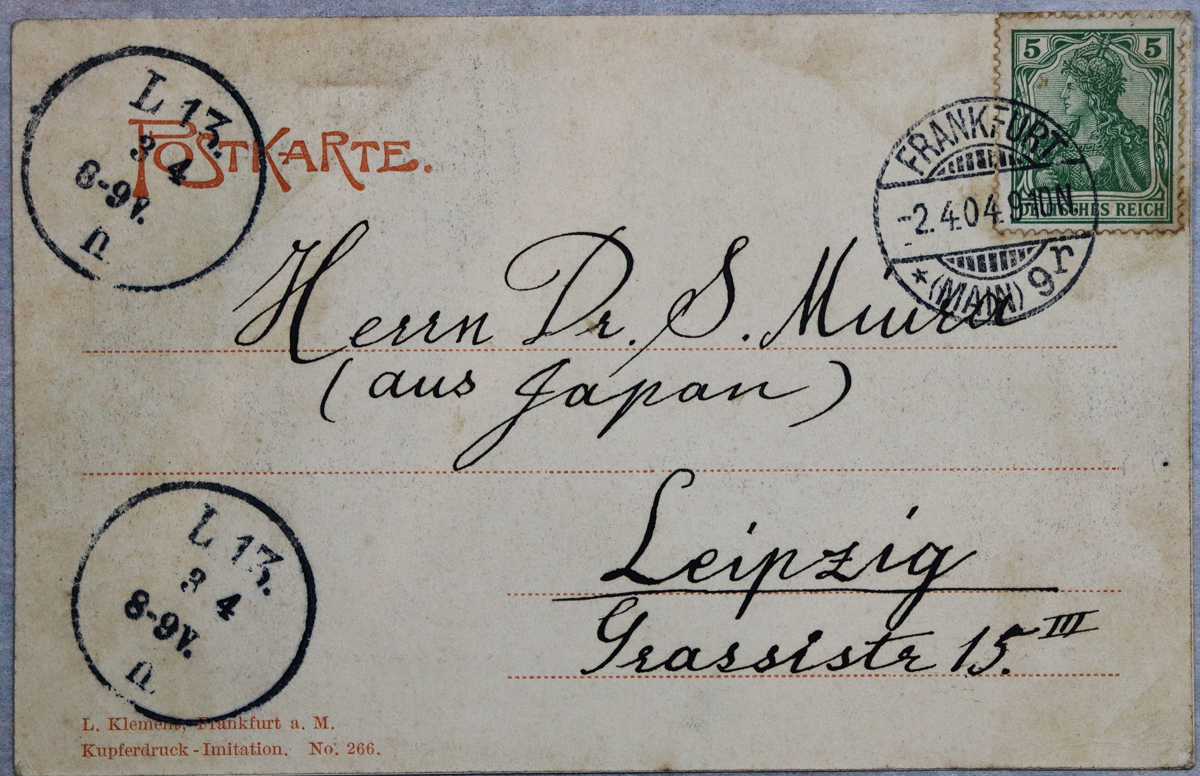 5 5
DEUTSCHES REICH
FRANKFURT
-2.4.04.9-10N.
* (MAIN) 9r
L 13.
3 4
8-9V.
n
POSTKARTE.
Herrn Dr. S. Miura
(aus Japan)
Leipzig
Grassistr 15.III
L 13.
3 4
8-9V.
n
L. Klement, Frankfurt a. M.
Kupferdruck - Imitation. No. 266.